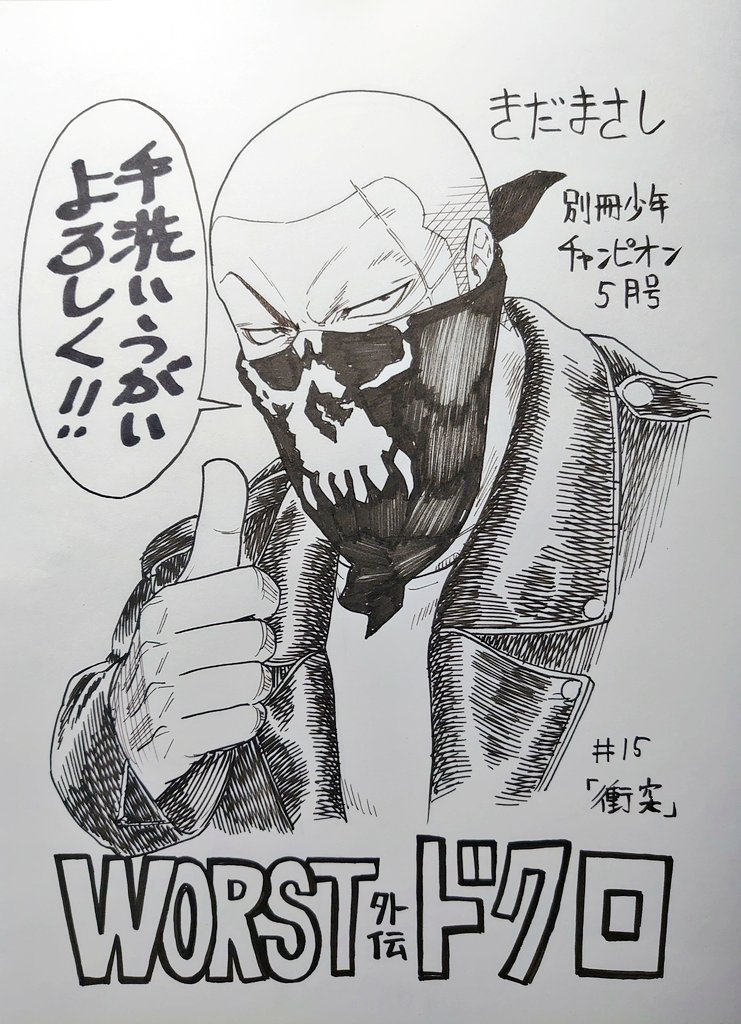 きだまさし
別冊少年
チャンピオン
5月号
手洗いうがい
よろしく!!
#15
「衝突」
WORST外伝ドクロ